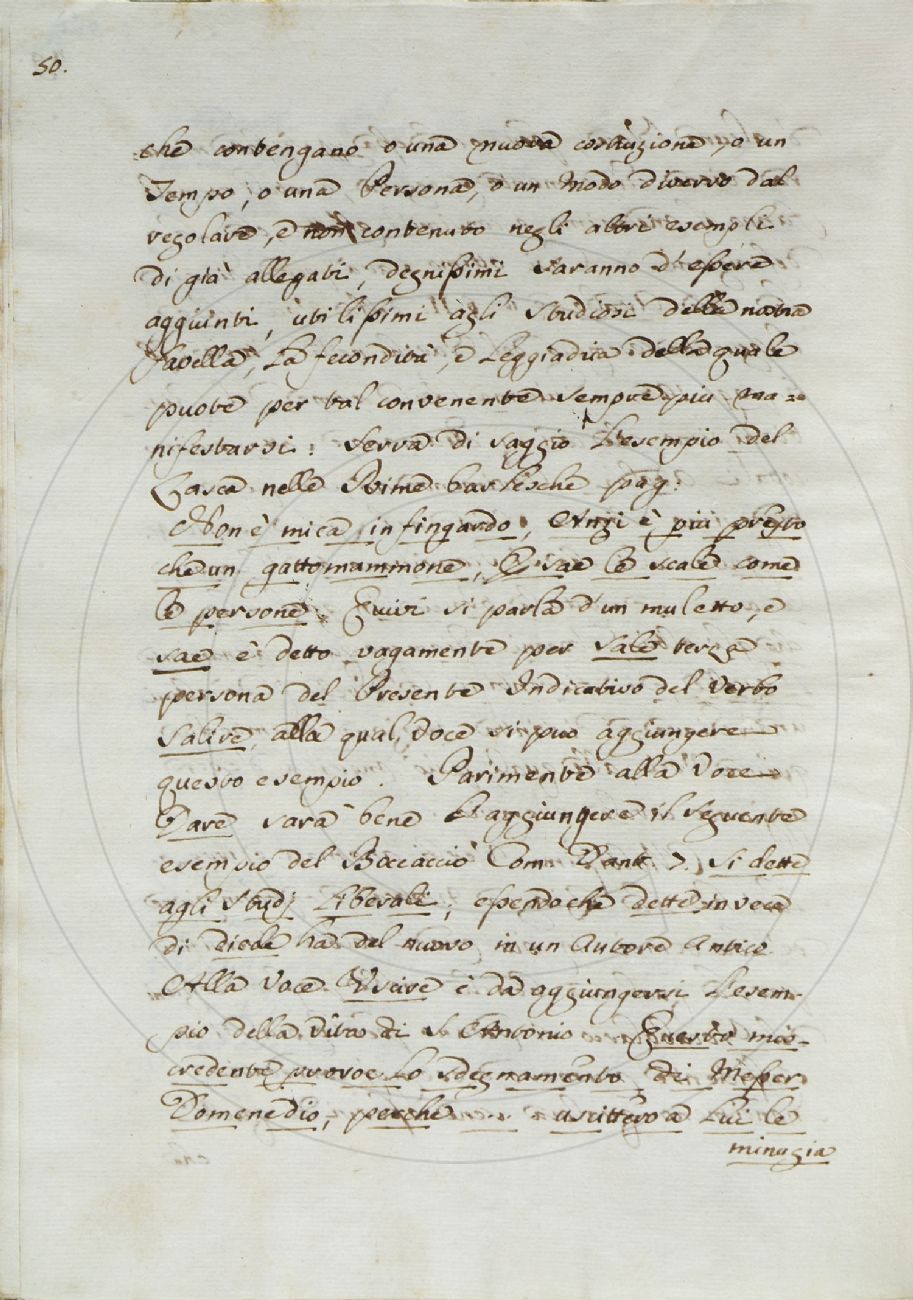 50.
che contengano o una nuova costruzione, o un
Tempo, o una Persona, o un Modo diverso dal
regolare, e non contenuto negli altri esempli
di già allegati, degnissimi saranno d'essere
aggiunti, utilissimi agli studiosi della nostra
favella, La fecondità, e Leggiadria della quale
puote per tal convenente sempre piu ma=
nifestarsi: Serva di saggio L'esempio del
Lasca nelle Rime burlesche pag:
Non è mica infingardo, Anzi è più presto
che un gattomammone, E sae le scale come
le persone. Quivi si parla d'un muletto, e
sae è detto vagamente per sale terza
persona del Presente Indicativo del Verbo
Salire, alla qual Voce si può aggiungere
questo esempio. Parimente alla Voce
Dare sarà bene L'aggiungere il seguente
esempio del Boccaccio Com. Dant. 7. Si dette
agli Studj Liberali, essendo che dette in vece
di diede ha del nuovo in un Autore antico
Alla Voce Uscire è da aggiungersi L'esem-
pio della Vita di S. Antonio Questo mis-
credente provoe Lo sdegnamento di Messer
Domenedio, perchè uscittero a Lui le
minugia